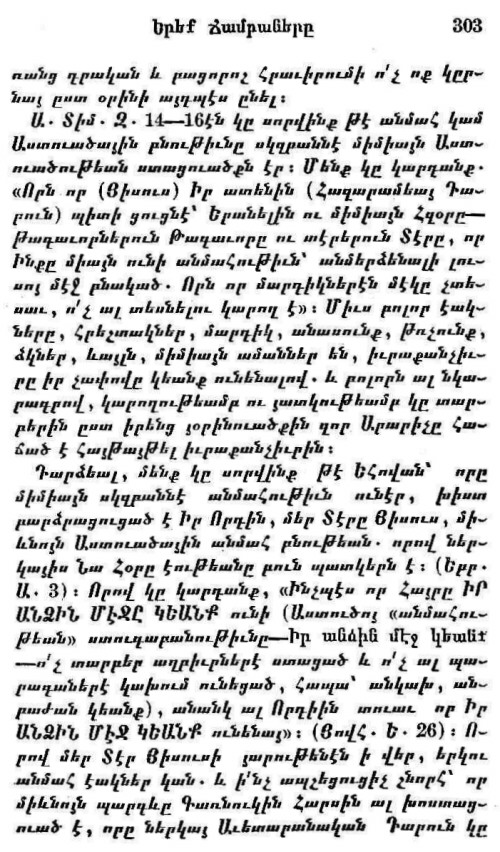 Երեք Ճամբաները 303
ռանց դրական և բացորոշ Հրաւիրումի ո՛չ ոք կըր-
նայ ըստ օրինի այդպէս ընել:
Ա. Տիմ. Զ. 14—16էն կը սորվինք թէ անմահ կամ
Աստուածային բնութիւնը սկզբաննէ միմիայն Աստ-
ուածութեան ստացուածքն էր: Մենք կը կարդանք.
«Որն որ (Յիսուս) Իր ատենին (Հազարամեայ Դա-
րուն) պիտի ցուցնէ՝ Երանելին ու միմիայն Հզօրը—
Թագաւորներուն Թագաւորը ու տէրերուն Տէրը, որ
Ինքը միայն ունի անմահութիւն՝ անմերձենալի լու-
սոյ մէջ բնակած. Որն որ մարդիկներէն մէկը չտե-
սաւ, ո՛չ ալ տեսնելու կարող է»: Միւս բոլոր էակ-
ները, Հրեշտակներ, մարդիկ, անասունք, թռչունք,
ձկներ, ևայլն, միմիայն ամաններ են, իւրաքանչիւ-
րը իր չափովը կեանք ունենալով. և բոլորն ալ նկա-
րագրով, կարողութեամբ ու յատկութեամբ կը տար-
բերին ըստ իրենց յօրինուածքին զոր Արարիչը Հա-
ճած է Հայթայթել իւրաքանչիւրին:
Դարձեալ, մենք կը սորվինք թէ ԵՀովան՝ որը
միմիայն սկզբաննէ անմահութիւն ունէր, խիստ
բարձրացուցած է Իր Որդին, մեր Տէրը Յիսուս, մի-
ևնոյն Աստուածային անմահ բնութեան. որով ներ-
կայիս Նա Հօրը էութեանը բուն պատկերն է: (Եբր.
Ա. 3): Որով կը կարդանք, «Ինչպէս որ Հայրը ԻՐ
ԱՆՁԻՆ ՄԷՋԸ ԿԵԱՆՔ ունի (Աստուծոյ «անմահու-
թեան» ստուգաբանութիւնը—Իր անձին մէջ կեանք
—ո՛չ տարբեր աղբիւրներէ ստացած և ո՛չ ալ պա-
րագաներէ կախում ունեցած, Հապա՝ անկախ, ան-
բաժան կեանք), անանկ ալ Որդիին տուաւ որ Իր
ԱՆՁԻՆ ՄԷՋ ԿԵԱՆՔ ունենայ»: (ՅովՀ. Ե. 26): Ո-
րով մեր Տէր Յիսուսի յարութենէն ի վեր, երկու
անմահ էակներ կան. և ի՛նչ ապշեցուցիչ շնորՀ՝ որ
միևնոյն պարգևը Գառնուկին Հարսին ալ խոստաց-
ուած է, որը ներկայ Աւետարանական Դարուն կը